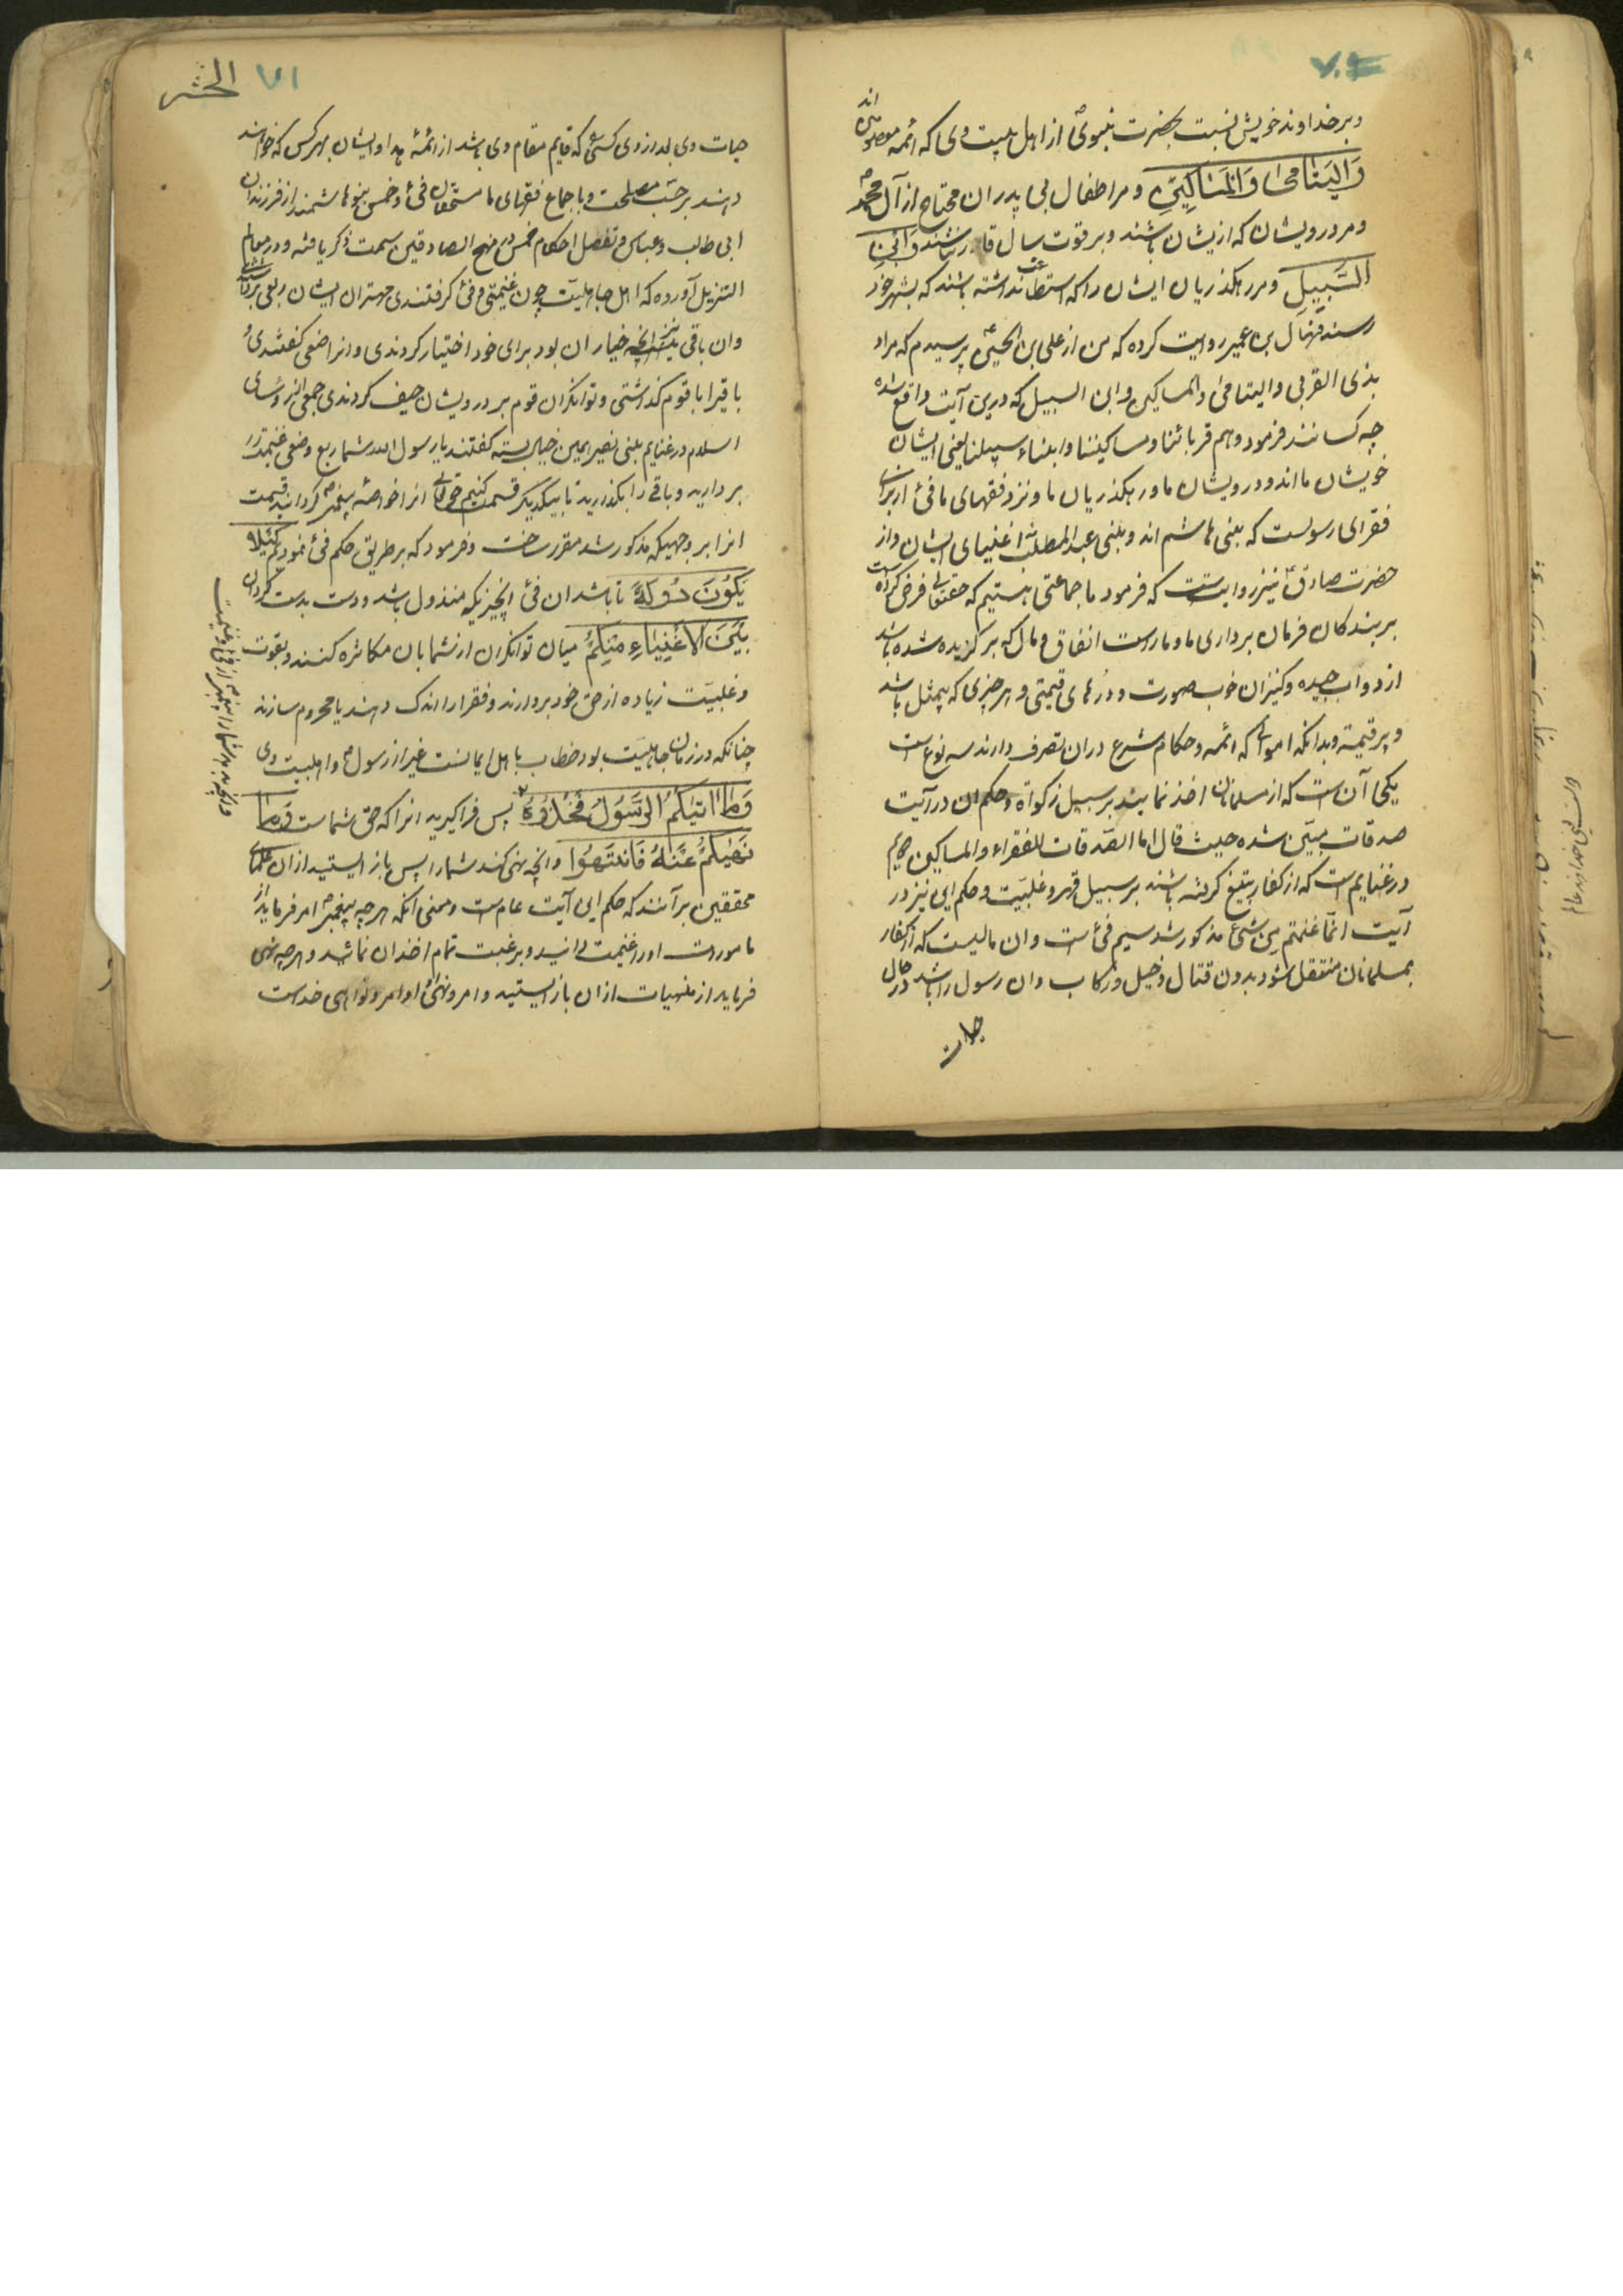 ۷۰
و بر خداوند خویش نسبت بحضرت نبوی از اهل بیت وی که ائمه معصومین اند
وَالْیَتَامٰی وَالْمَسَاکِینِ و مر اطفال بی پدران محتاج از آل محمد
و مر درویشان که ازیشان باشند و بر قوت سال قادر نباشند وَابْنِ
السَّبِیلِ و مر رهگذریان ایشان را که استطاعت نداشته باشند که بشهر خود
رسند منهال بن عمیر روایت کرده که من از علی بن الحسین پرسیدم که مراد
بذی القربی و الیتامی و المساکین و ابن السبیل که درین آیت واقع شده
چه کسانند فرمود هم قربائنا و مساکیننا و ابناء سبیلنا یعنی ایشان
خویشان ما اند و درویشان ما و رهگذریان ما و نزد فقهای ما فئ از برای
فقرای رسولست که بنی هاشم اند و بنی عبدالمطلب اغنیای ایشان و از
حضرت صادق نیز روایتست که فرمود ما جماعتی هستیم که حقتعالی فرض کرده است
بر بندگان فرمان برداری ما و ماراست انفاق و مال که برگزیده شده باشد
از دواب جیده و کنیزان خوب صورت و درهای قیمتی و هر چیزی که بیمثل باشد
و پر قیمة و بدانکه اموالی که ائمه و حکام شرع در ان تصرف دارند سه نوع است
یکی آن است که از مسلمانان اخذ نمایند بر سبیل زکواة و حکم ان در آیت
صدقات مبین شده حیث قال انما الصدقات للفقراء و المساکین دویم
در غنایم است که از کفار بتیغ گرفته باشند بر سبیل قهر و غلبیت و حکم این نیز در
آیت انما غنمتم من شئ مذکور شد سیم فئ است و ان مالیست که از کفار
بمسلمانان منتقل شود بدون قتال و خیل و رکاب و ان رسول را باشد در حال
حیات
۷۱ الحشر
حیات وی بعد از وی کسی که قایم مقام وی باشد از ائمه هدا و ایشان بهر کس که خواهند
دهند بر حسب مصلحت و باجماع فقهای ما مستحقان فئ و خمس بنوهاشمند از فرزندان
ابی طالب و عباس و تفصیل احکام خمس در منهج الصادقین سمت ذکر یافته و در معالم
التنزیل آورده که اهل جاهلیت چون غنیمتی و فئ گرفتندی مهتران ایشان ربعی برداشتندی
و ان باقی نیز آنچه خیار ان بود برای خود اختیار کردندی و انرا صفی گفتندی و
باقی را با قوم گذاشتی و توانگران قوم بر درویشان حیف کردندی جمعی از رؤسای
اسلام در غنایم بنی نضیر همین خیال بسته گفتند یا رسول الله شما ربع و صفی غنیمت را
بردارید و باقی را بگذارید تا بیکدیگر قسمت کنیم حقتعالی انرا خواصه پیغمبر گردانید و قسمت
انرا بر وجهیکه مذکور شد مقرر ساخت و فرمود که بر طریق حکم فئ نمودیم کَیْلَا
یَکُونَ دُولَةً تا باشد ان فئ انچیزیکه متداول باشد و دست بدست گردان
بَیْنَ الْاَغْنِیَاءِ مِنْکُمْ میان توانگران از شما بان مکاثره کنند و بقوت
و غلبیت زیاده از حق خود بردارند و فقرا را اندک دهند یا محروم سازند
چنانکه در زمان جاهلیت بود خطاب با اهل ایمانست غیر از رسول و اهلبیت وی
وَمَا اٰتٰیکُمُ الرَّسُولُ فَخُذُوهُ پس فرا گیرید انرا که حق شماست وَمَا
نَهٰیکُمْ عَنْهُ فَانْتَهُوا و انچه نهی کند شما را پس باز ایستید از ان علمای
محققین بر آنند که حکم این آیت عام است و معنی آنکه هر چه پیغمبر امر فرماید از
مامورات او را غنیمت دانید و برغبت تمام اخذ ان نمائید و هر چه نهی
فرماید از منهیات از ان باز ایستید و امر و نهی او اوامر و نواهی خداست
و انچه بدهد شما را پیغمبر از فئ و غنیمت